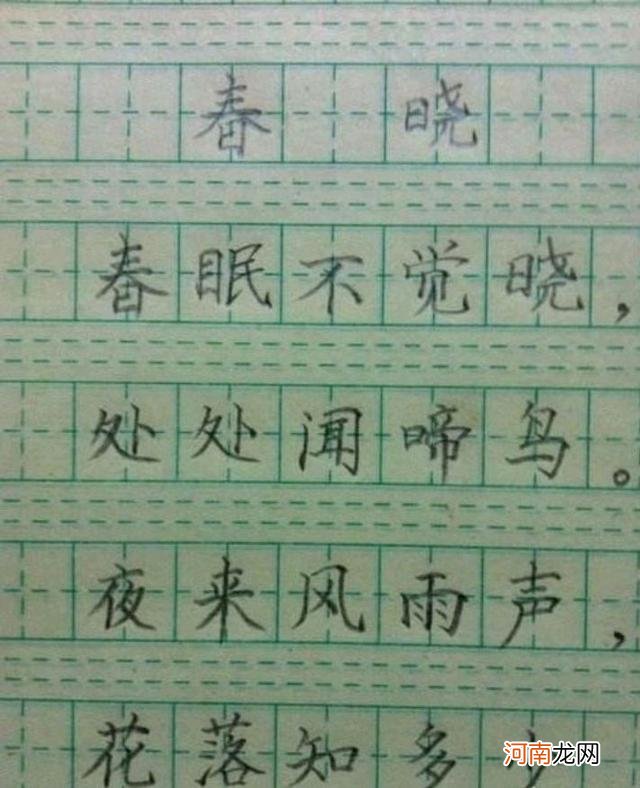 春晓
春眠不觉晓,
处处闻啼鸟。
夜来风雨声,
花落知多少
河南龙网